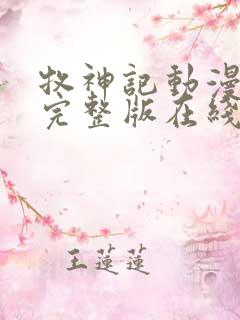 牧神記動漫
完整版在綫
王蓮蓮